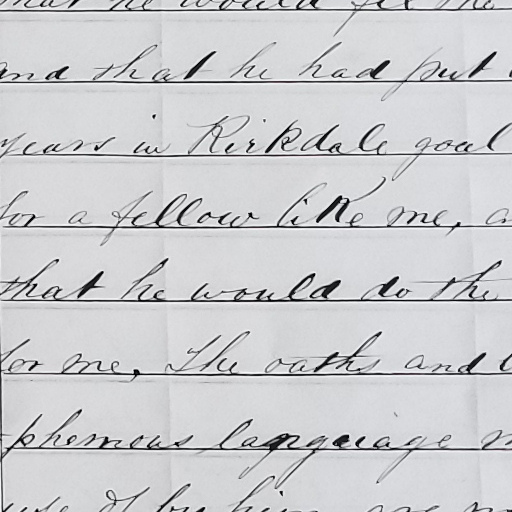 that he would fix me
and that he had put
years in Kirkdale goal
for a fellow like me,
that he would do the
for me, The oaths and
phemous language
use of by him are